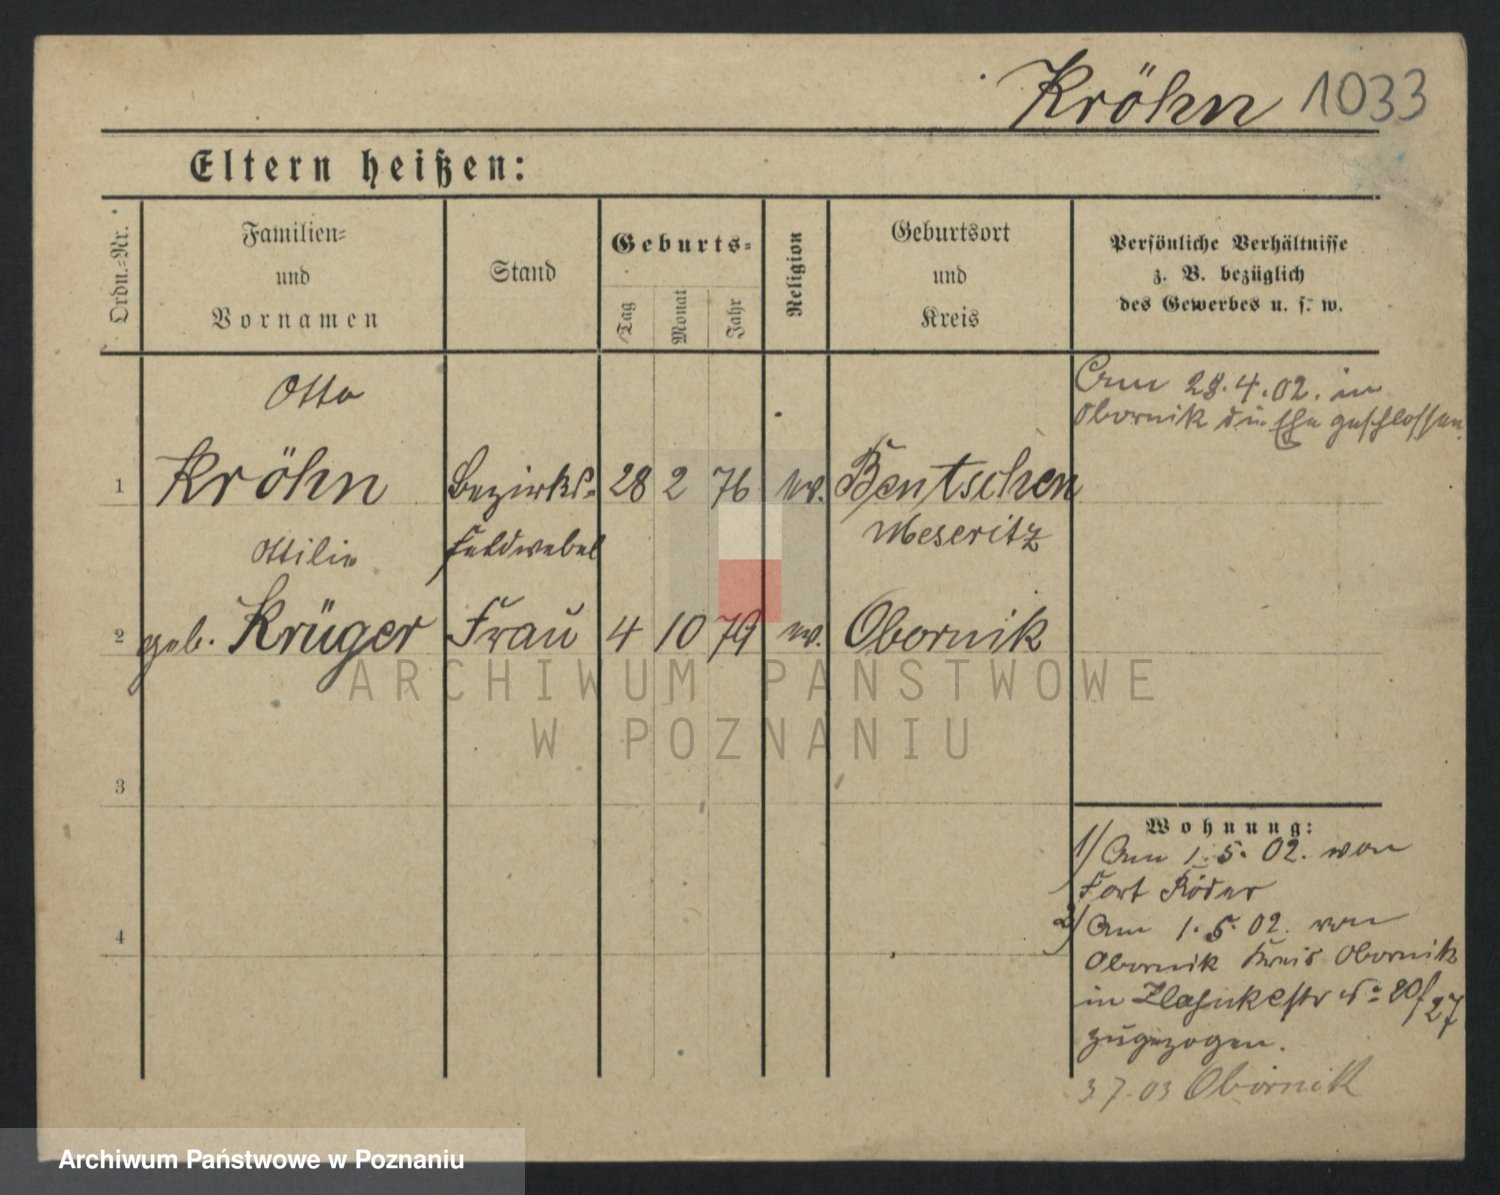 Kröhn 1033
Eltern heißen:
Ordn.-Nr.
Familien-
und
Vornamen
Stand
Geburts-
Tag
Monat
Jahr
Religion
Geburtsort
und
Kreis
Persönliche Verhältnisse
z. B. bezüglich
des Gewerbes u. s. w.
Otto
Am 28.4.02. in
Obornik die Ehe geschlossen.
1 Kröhn Bezirks- 28 2 76 ev. Bentschen
Feldwebel Meseritz
Ottilie
2 geb. Krüger Frau 4 10 79 ev. Obornik
ARCHIWUM PAŃSTWOWE
W POZNANIU
3
Wohnung:
1) Am 1.5.02. von
Fort Röder
2) Am 1.5.02. von
4
Obornik Kreis Obornik
in 20/27
zugezogen.
3 7.03 Obornik
Archiwum Państwowe w Poznaniu